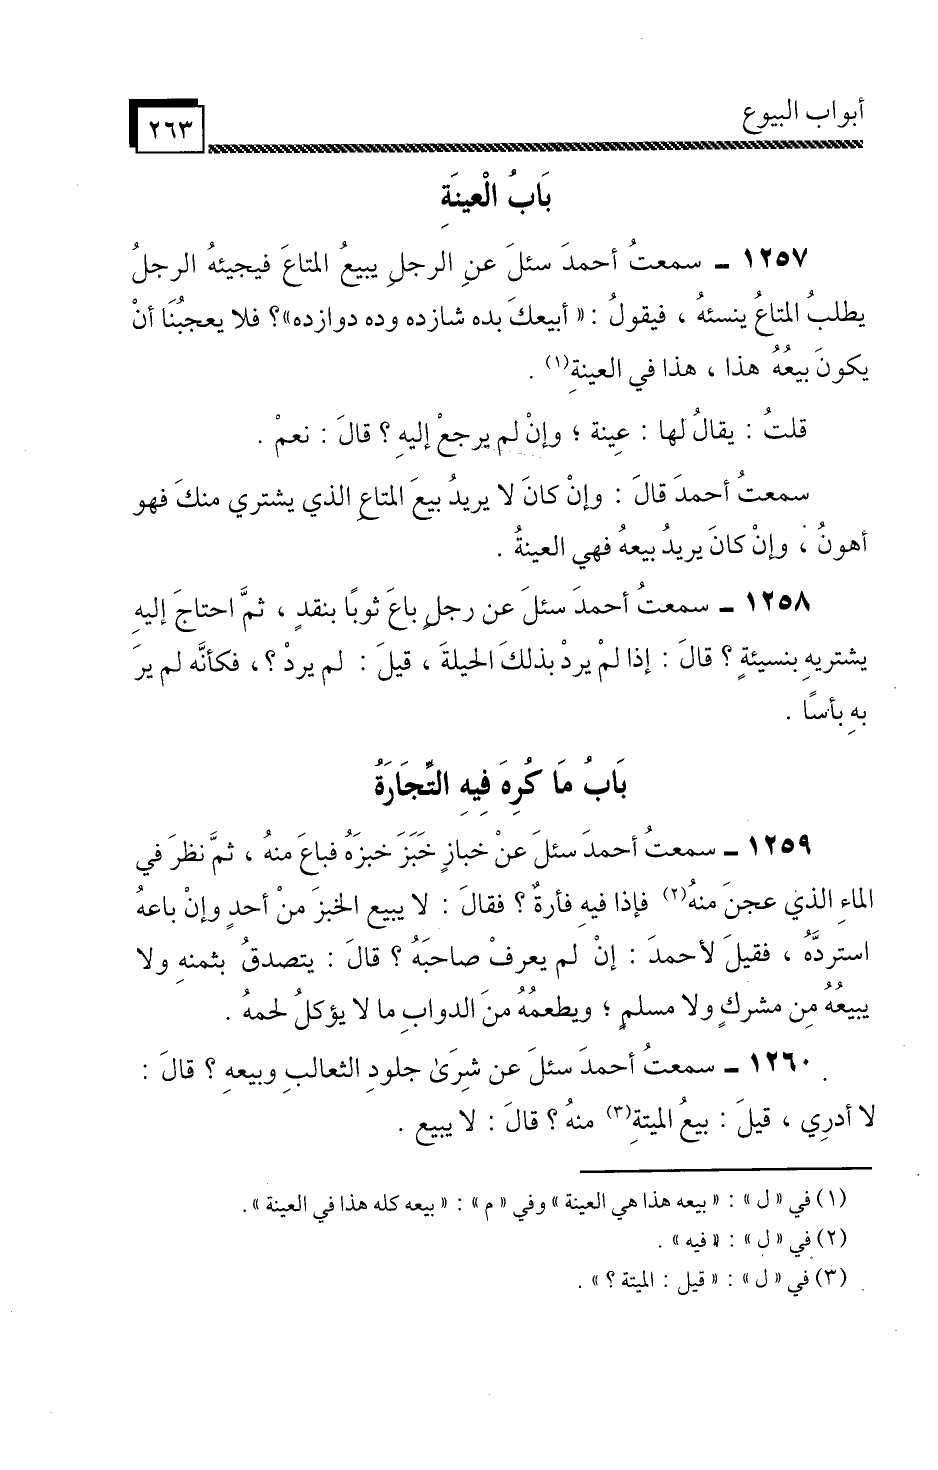 أبواب البيوع
٢٦٣
بَابُ الْعِينَةِ
١٢٥٧ ـ سمعتُ أحمدَ سئلَ عنِ الرجلِ يبيعُ المتاعَ فيجيئهُ الرجلُ
يطلبُ المتاعُ ينسئهُ ، فيقولُ : « أبيعكَ بده شازده وده دوازده»؟ فلا يعجبُنَا أنْ
يكونَ بيعُهُ هذا ، هذا في العينةِ(١) .
قلتُ : يقالُ لها : عِينة ؛ وإنْ لم يرجعْ إليهِ ؟ قالَ : نعمْ .
سمعتُ أحمدَ قالَ : وإنْ كانَ لا يريدُ بيعَ المتاعِ الذي يشتري منكَ فهو
أهونُ ، وإنْ كانَ يريدُ بيعهُ فهي العينةُ .
١٢٥٨ ـ سمعتُ أحمدَ سئلَ عن رجلٍ باعَ ثوبًا بنقدٍ ، ثمَّ احتاجَ إليهِ
يشتريهِ بنسيئةٍ ؟ قالَ : إذا لمْ يردْ بذلكَ الحيلةَ ، قيلَ : لم يردْ ؟ ، فكأنَّه لم يرَ
بهِ بأسًا .
بَابُ مَا كُرِهَ فِيهِ التِّجَارَةُ
١٢٥٩ ـ سمعتُ أحمدَ سئلَ عنْ خبازٍ خَبَزَ خبزَهُ فباعَ منهُ ، ثمَّ نظرَ في
الماءِ الذي عجنَ منهُ(٢) فإذا فيهِ فأرةٌ ؟ فقالَ : لا يبيع الخبزَ منْ أحدٍ وإنْ باعهُ
استردَّهُ ، فقيلَ لأحمدَ : إنْ لم يعرفْ صاحبَهُ ؟ قالَ : يتصدقُ بثمنهِ ولا
يبيعُهُ مِن مشركٍ ولا مسلمٍ ؛ ويطعمُهُ منَ الدوابِ ما لا يؤكلُ لحمهُ .
١٢٦٠ ـ سمعتُ أحمدَ سئلَ عن شِرَىٰ جلودِ الثعالبِ وبيعهِ ؟ قالَ :
لا أدرِي ، قيلَ : بيعُ الميتةِ(٣) منهُ ؟ قالَ : لا يبيع .
(١) في « ل » : « بيعه هذا هي العينة » وفي « م » : « بيعه كله هذا في العينة » .
(٢) في « ل » : « فيه » .
(٣) في « ل » : « قيل : الميتة ؟ » .